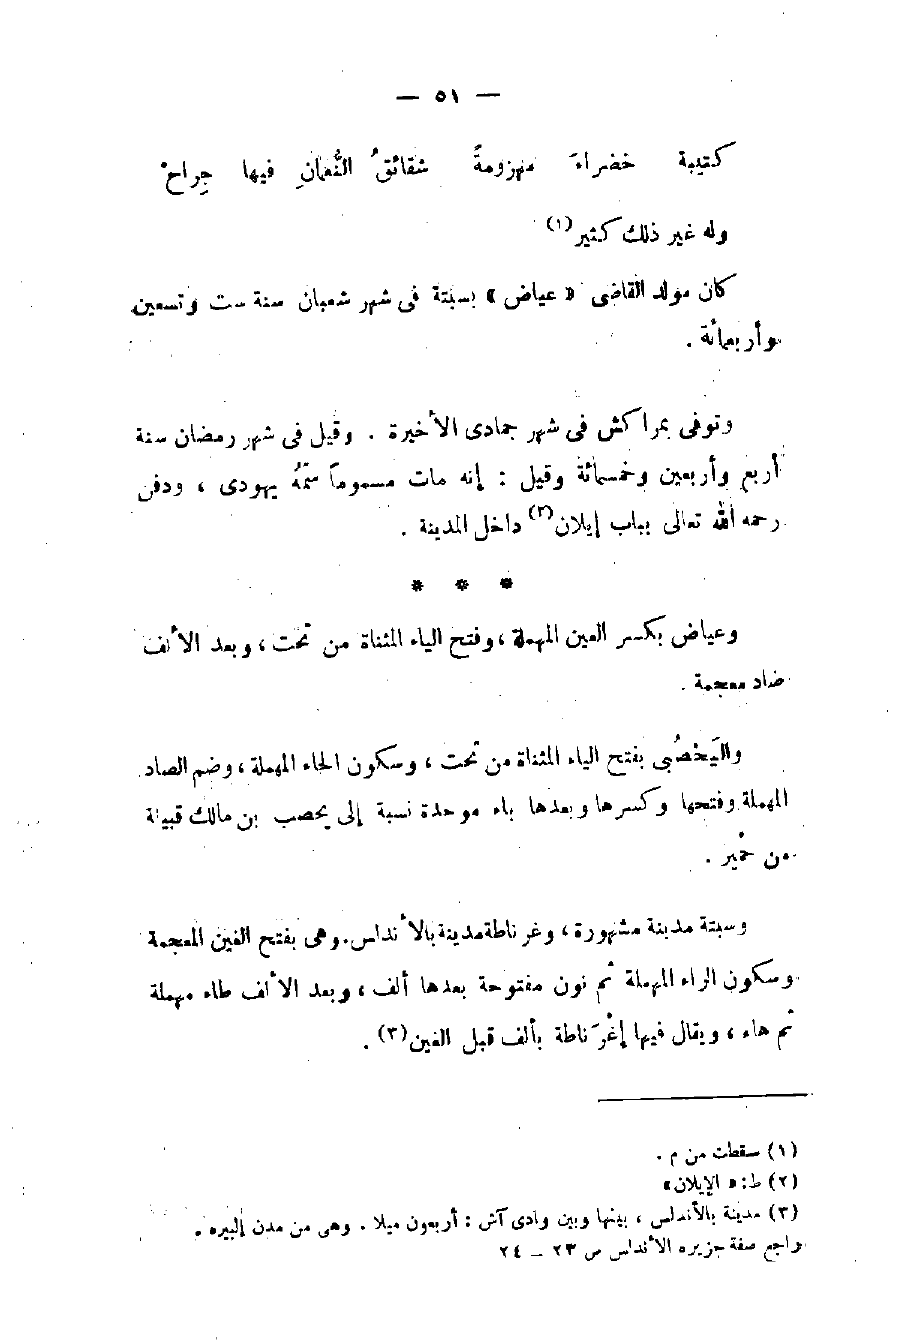 — ٥١ —
كتيبة خضراءَ مهزومةً شقائقُ النُّعمانِ فيها جِراحْ
وله غير ذلك كثير(١)
كان مولد القاضى « عياض » بسبتة فى شهر شعبان سنة ست وتسعين
وأربعمائة .
وتوفى بمراكش فى شهر جمادى الأخيرة . وقيل فى شهر رمضان سنة
أربع وأربعين وخمسمائة وقيل : إنه مات مسموماً سَمَّهُ يهودى ، ودفن
رحمه الله تعالى بباب إيلان(٢) داخل المدينة .
* * *
وعياض بكسر العين المهملة ، وفتح الياء المثناة من تحت ، وبعد الألف
ضاد معجمة .
واليَحْصُبى بفتح الياء المثناة من تحت ، وسكون الحاء المهملة ، وضم الصاد
المهملة وفتحها وكسرها وبعدها باء موحدة نسبة إلى يحصب بن مالك قبيلة
من حْمير .
وسبتة مدينة مشهورة ، وغرناطة مدينة بالأندلس . وهى بفتح الغين المعجمة
وسكون الراء المهملة ثم نون مفتوحة بعدها ألف ، وبعد الألف طاء مهملة
ثم هاء ، ويقال فيها إغْرَناطة بألف قبل الغين(٣) .
(١) سقطت من م .
(٢) ط : « الإيلان»
(٣) مدينة بالأندلس ، بينها وبين وادى آش : أربعون ميلا . وهى من مدن إلبيره .
راجع صفة جزيره الأندلس ص ٢٣ – ٢٤